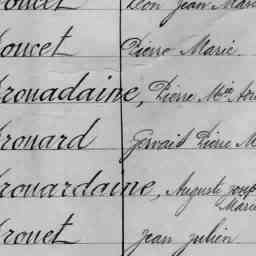 Léon Jean Marie
oucet Pierre Marie
rouadaine, Pierre Mie
rouard Gervais Pierre M
rouardaine, Auguste Josep
Marie
rouet Jean Julien